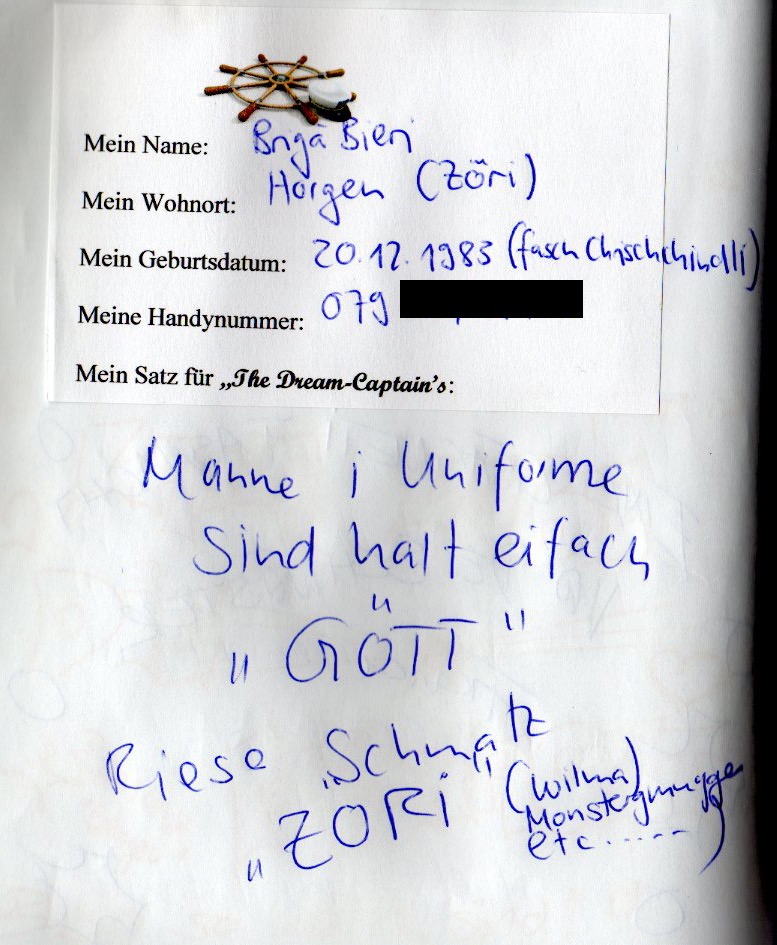 Mein Name: Brigä Bieri
Mein Wohnort: Horgen (Zöri)
Mein Geburtsdatum: 20.12.1983 (fasch Chrischchindli)
Meine Handynummer: 079
Mein Satz für „The Dream-Captain's:
Manne i Uniforme
Sind halt eifach
„GÖTT"
Riese Schmatz
„ZÖRI" (Wilma)
Monstergmugge
etc......)